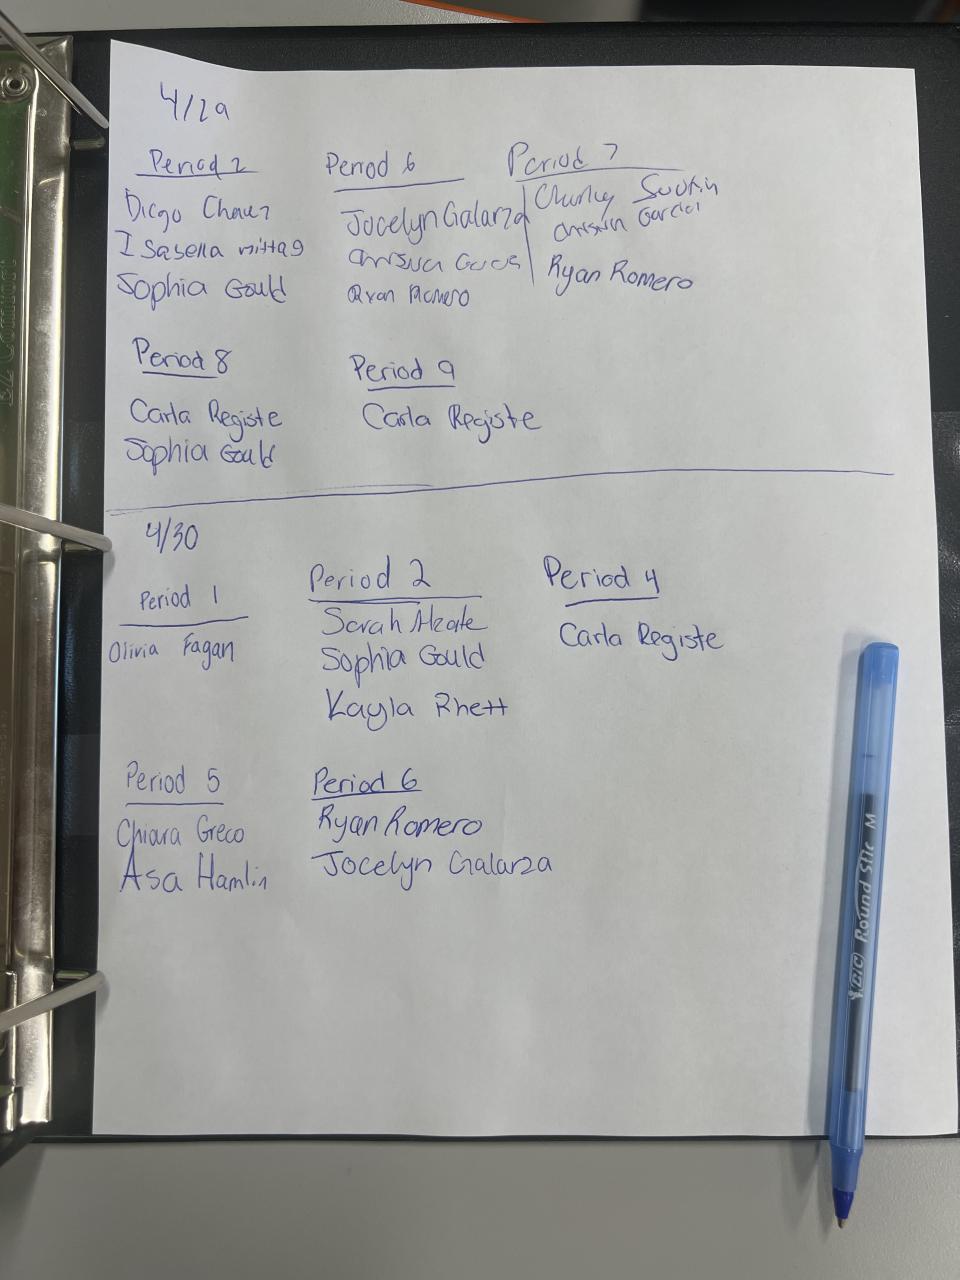 4/29
Period 2
Diego Chavez
Isabella Mittag
Sophia Gould
Period 6
Jocelyn Galarza
Ryan Romero
Period 7
Charley
Garcia
Ryan Romero
Period 8
Carla Registe
Sophia Gould
Period 9
Carla Registe
4/30
Period 1
Olivia Fagan
Period 2
Sarah Alzate
Sophia Gould
Kayla Rhett
Period 4
Carla Registe
Period 5
Chiara Greco
Asa Hamlin
Period 6
Ryan Romero
Jocelyn Galarza
BIC Round Stic M